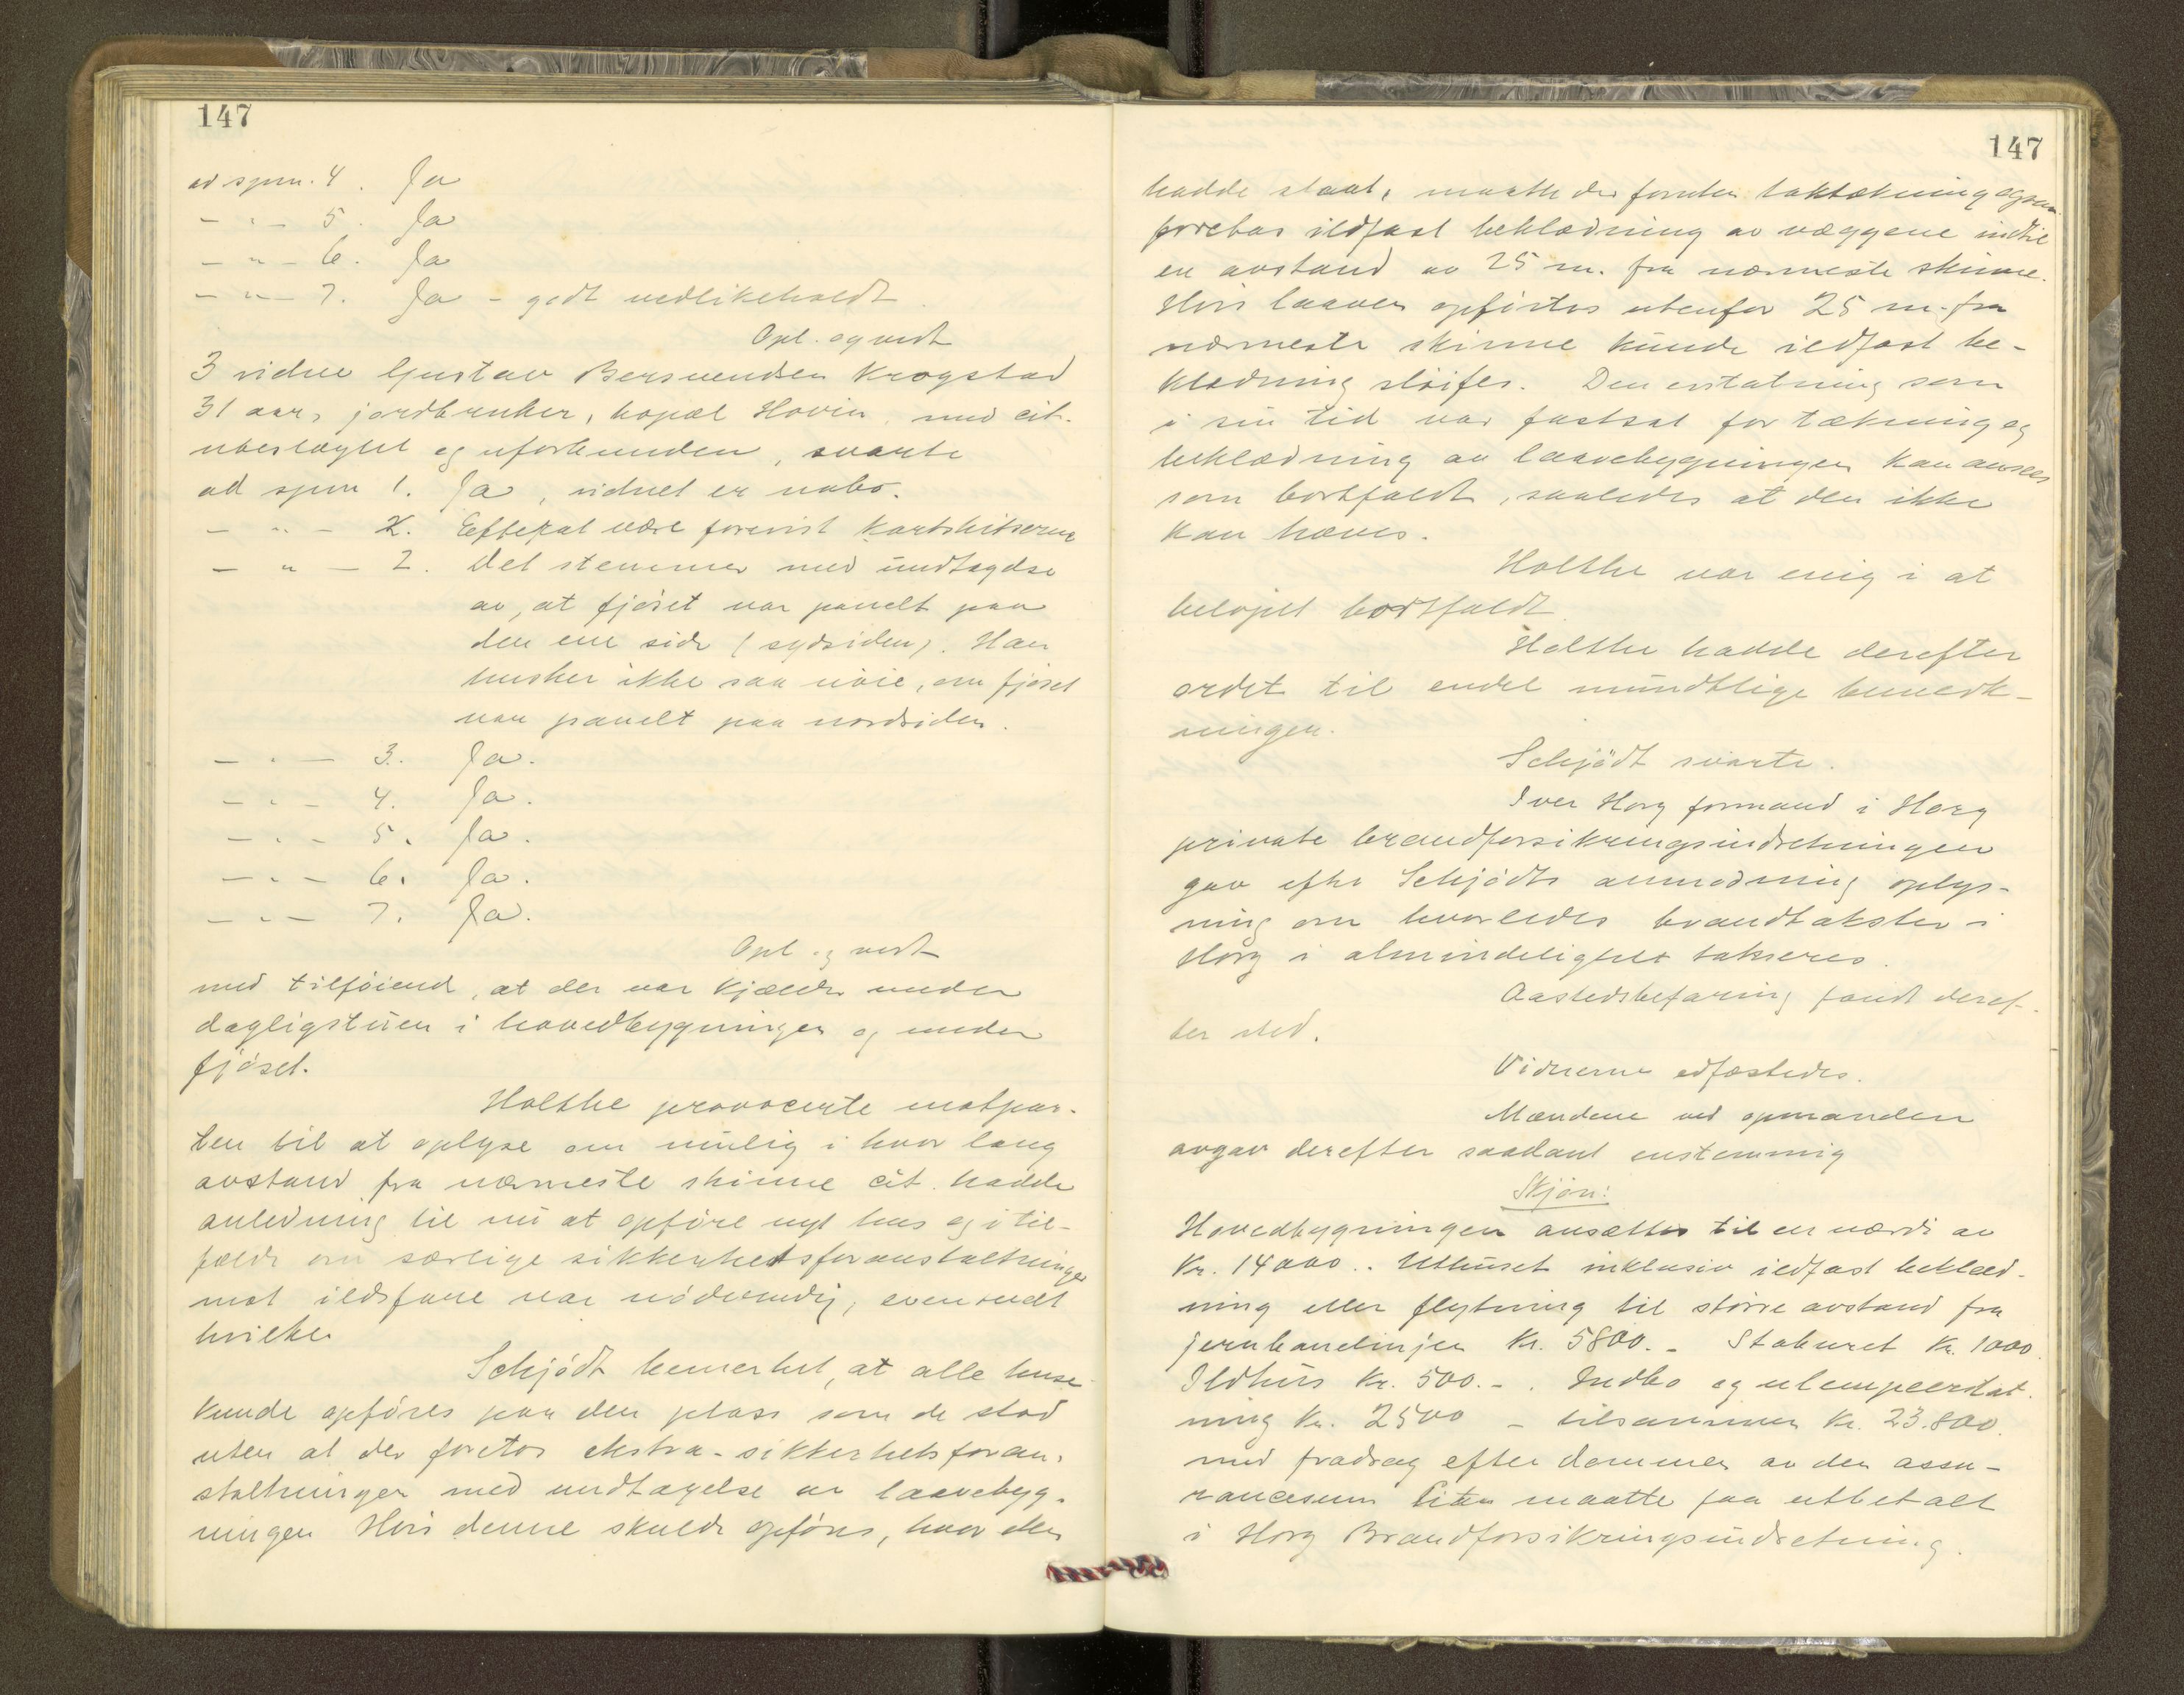 147
ad spm. 4. Ja
- " - 5. Ja
- " - 6. Ja
- " - 7. Ja - godt vedlikeholdt.
Opl. og vedt
3 vidne Gustav Bersvendsen Krogstad
31 aar, jordbruker, bopæl Hovin, med cit.
ubeslægtet og uforbunden, svarte
ad spm 1. Ja, vidnet er nabo.
- " - 2. Efterat være forevist kartskitserne
- " - 2. Det stemmer med undtagelse
av, at fjøset var panelt paa
den ene side (sydsiden). Han
husker ikke saa nöie, om fjøset
var panelt paa nordsiden.
- " - 3. Ja.
- " - 4. Ja.
- " - 5. Ja.
- " - 6. Ja.
- " - 7. Ja.
Opl. og vedt
med tilföiend, at der var kjælder under
dagligstuen i hovedbygningen og under
fjöset.
Holthe provocerte motpar-
ten til at oplyse om mulig i hvor lang
avstand fra nærmeste skinne cit. hadde
anledning til nu at opföre nyt hus og i til-
fælde om særlige sikkerhetsforanstaltninger
mot ildsfare var nödvendig, eventuelt
hvilke.
Schjödt bemerket, at alle huse
kunde opföres paa den plass som de stod
uten at der foretos ekstra-sikkerhetsforan-
staltninger med undtagelse av laavebyg-
ningen. Hvis denne skulde opföres, hvor den
147
hadde staat, maatte der foruten taktækning ogsaa
foretas ildfast beklædning av væggene indtil
en avstand av 25 m. fra nærmeste skinne.
Hvis laaven opförtes utenfor 25 m. fra
nærmeste skinne kunde ildfast be-
klædning slöifes. Den erstatning som
i sin tid var fastsat for tækning og
beklædning av laavebygningen kan ansees
som bortfaldt, saaledes at den ikke
kan hæves.
Holthe var enig i at
belöpet bortfaldt.
Holthe hadde derefter
ordet til endel mundtlige bemerk-
ninger.
Schjödt svarte.
Iver Horg formand i Horg
private brandforsikringsindretningen
gav efter Schjödts anmodning oplys-
ning om hvorledes brandtakster i
Horg i almindelighet takseres.
Aastedsbefaring fandt deref-
ter sted.
Vidnerne edfæstedes.
Mændene ved opmanden
avgav derefter saadant enstemmig
Skjön:
Hovedbygningen ansættes til en værdi av
Kr. 14000.. Uthuset inklusiv ildfast beklæd-
ning eller flytning til större avstand fra
jernbanelinjen Kr. 5800.- Staburet Kr. 1000.
Ildhus Kr. 500.-. Indbo og ulempeerstat-
ning Kr. 2500 - tilsammen Kr. 23.800.
med fradrag efter dommen av den assu-
rancesum Citan maatte faa utbetalt
i Horg Brandforsikringsindretning.